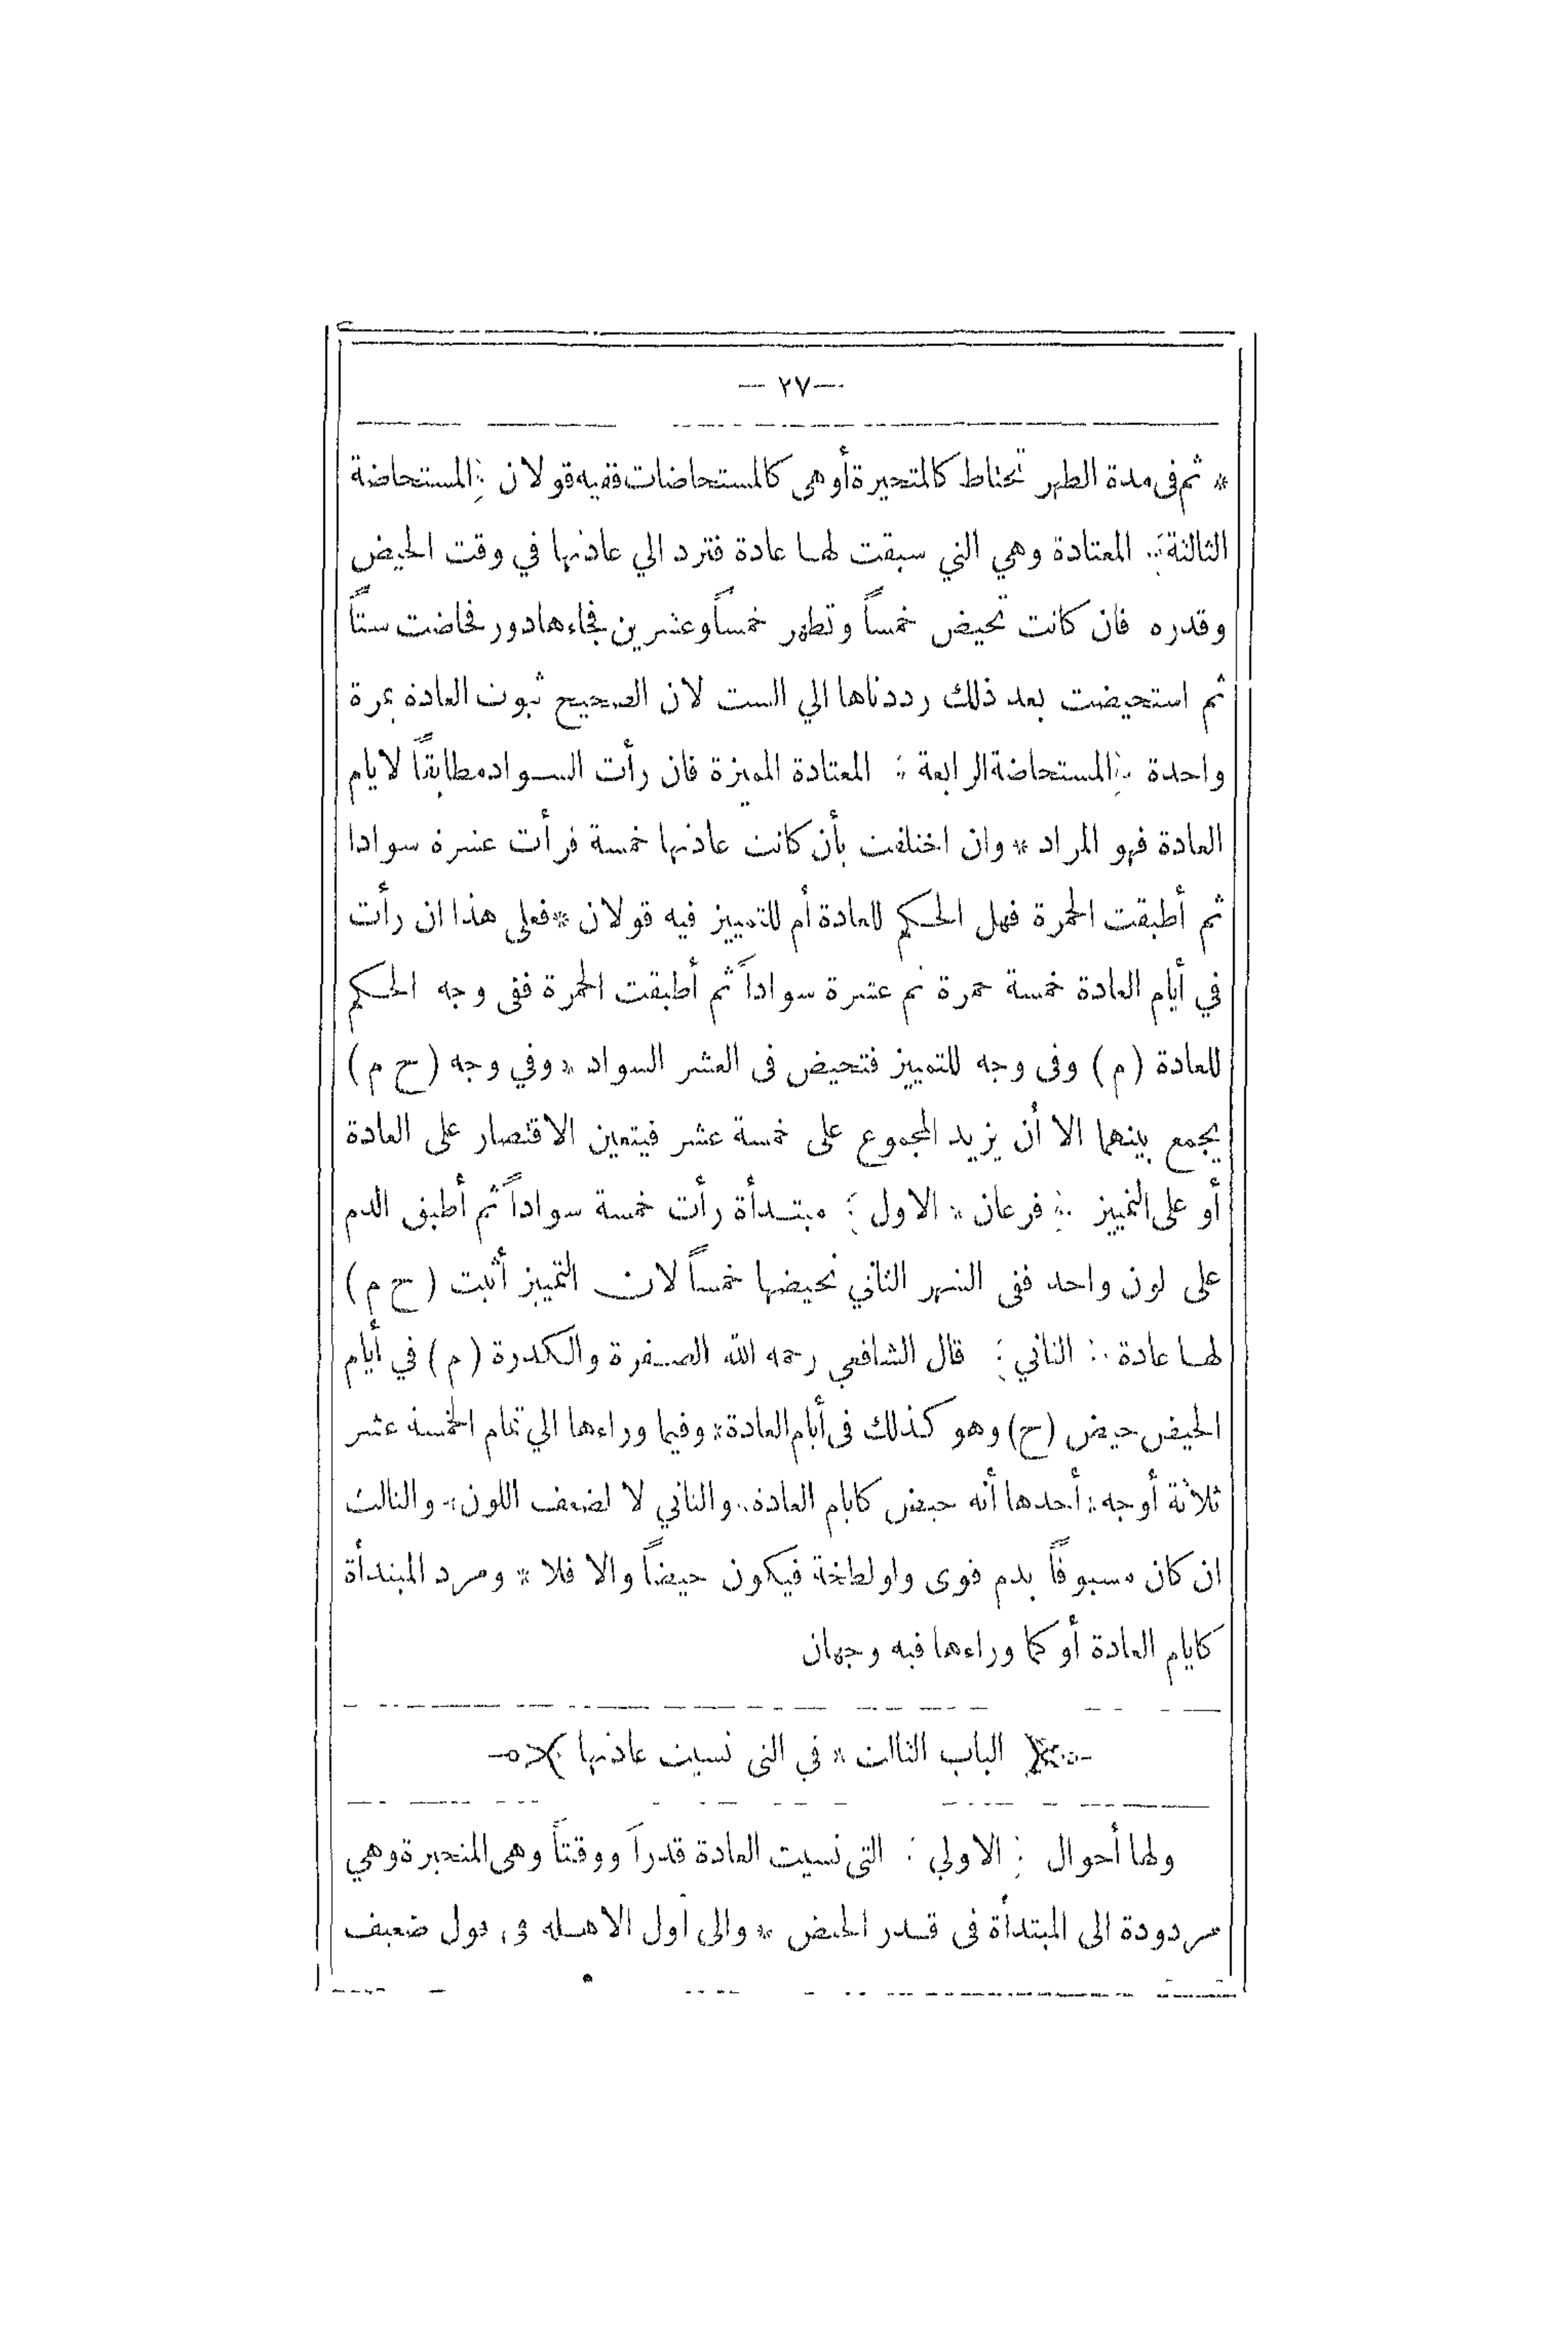 — ٢٧ —
* ثم فى مدة الطهر تحتاط كالمتحيرة أوهى كالمستحاضات ففيه قولان : المستحاضة
الثالثة : المعتادة وهي التي سبقت لها عادة فترد الي عادتها في وقت الحيض
وقدره فان كانت تحيض خمساً وتطهر خمساً وعشرين فجاءها دور فحاضت ستاً
ثم استحيضت بعد ذلك رددناها الي الست لان الصحيح ثبوت العادة بمرة
واحدة : المستحاضة الرابعة : المعتادة المميزة فان رأت السواد مطابقاً لايام
العادة فهو المراد * وان اختلفت بأن كانت عادتها خمسة فرأت عشرة سوادا
ثم أطبقت الحمرة فهل الحكم للعادة أم للتمييز فيه قولان * فعلى هذا ان رأت
في أيام العادة خمسة حمرة ثم عشرة سواداً ثم أطبقت الحمرة ففى وجه الحكم
للعادة (م) وفى وجه للتمييز فتحيض فى العشر السواد * وفي وجه (ح م)
يجمع بينهما الا أن يزيد المجموع على خمسة عشر فيتعين الاقتصار على العادة
أو على التمييز : فرعان * الاول : مبتدأة رأت خمسة سواداً ثم أطبق الدم
على لون واحد ففى الشهر الثاني نحيضها خمساً لان التمييز أثبت (ح م)
لها عادة : الثاني : قال الشافعي رحمه الله الصفرة والكدرة (م) في أيام
الحيض حيض (ح) وهو كذلك فى أيام العادة * وفيما وراءها الي تمام الخمسة عشر
ثلاثة أوجه : أحدها أنه حيض كايام العادة * والثاني لا لضعف اللون * والثالث
ان كان مسبوقاً بدم قوى ولو لطخة فيكون حيضاً والا فلا * ومرد المبتدأة
كايام العادة أو كما وراءها فيه وجهان
الباب الثالث * في التى نسيت عادتها
ولها أحوال : الاولي : التى نسيت العادة قدراً ووقتاً وهى المتحيرة وهي
مردودة الى المبتدأة فى قدر الحيض * والى أول الاهلة فى قول ضعيف